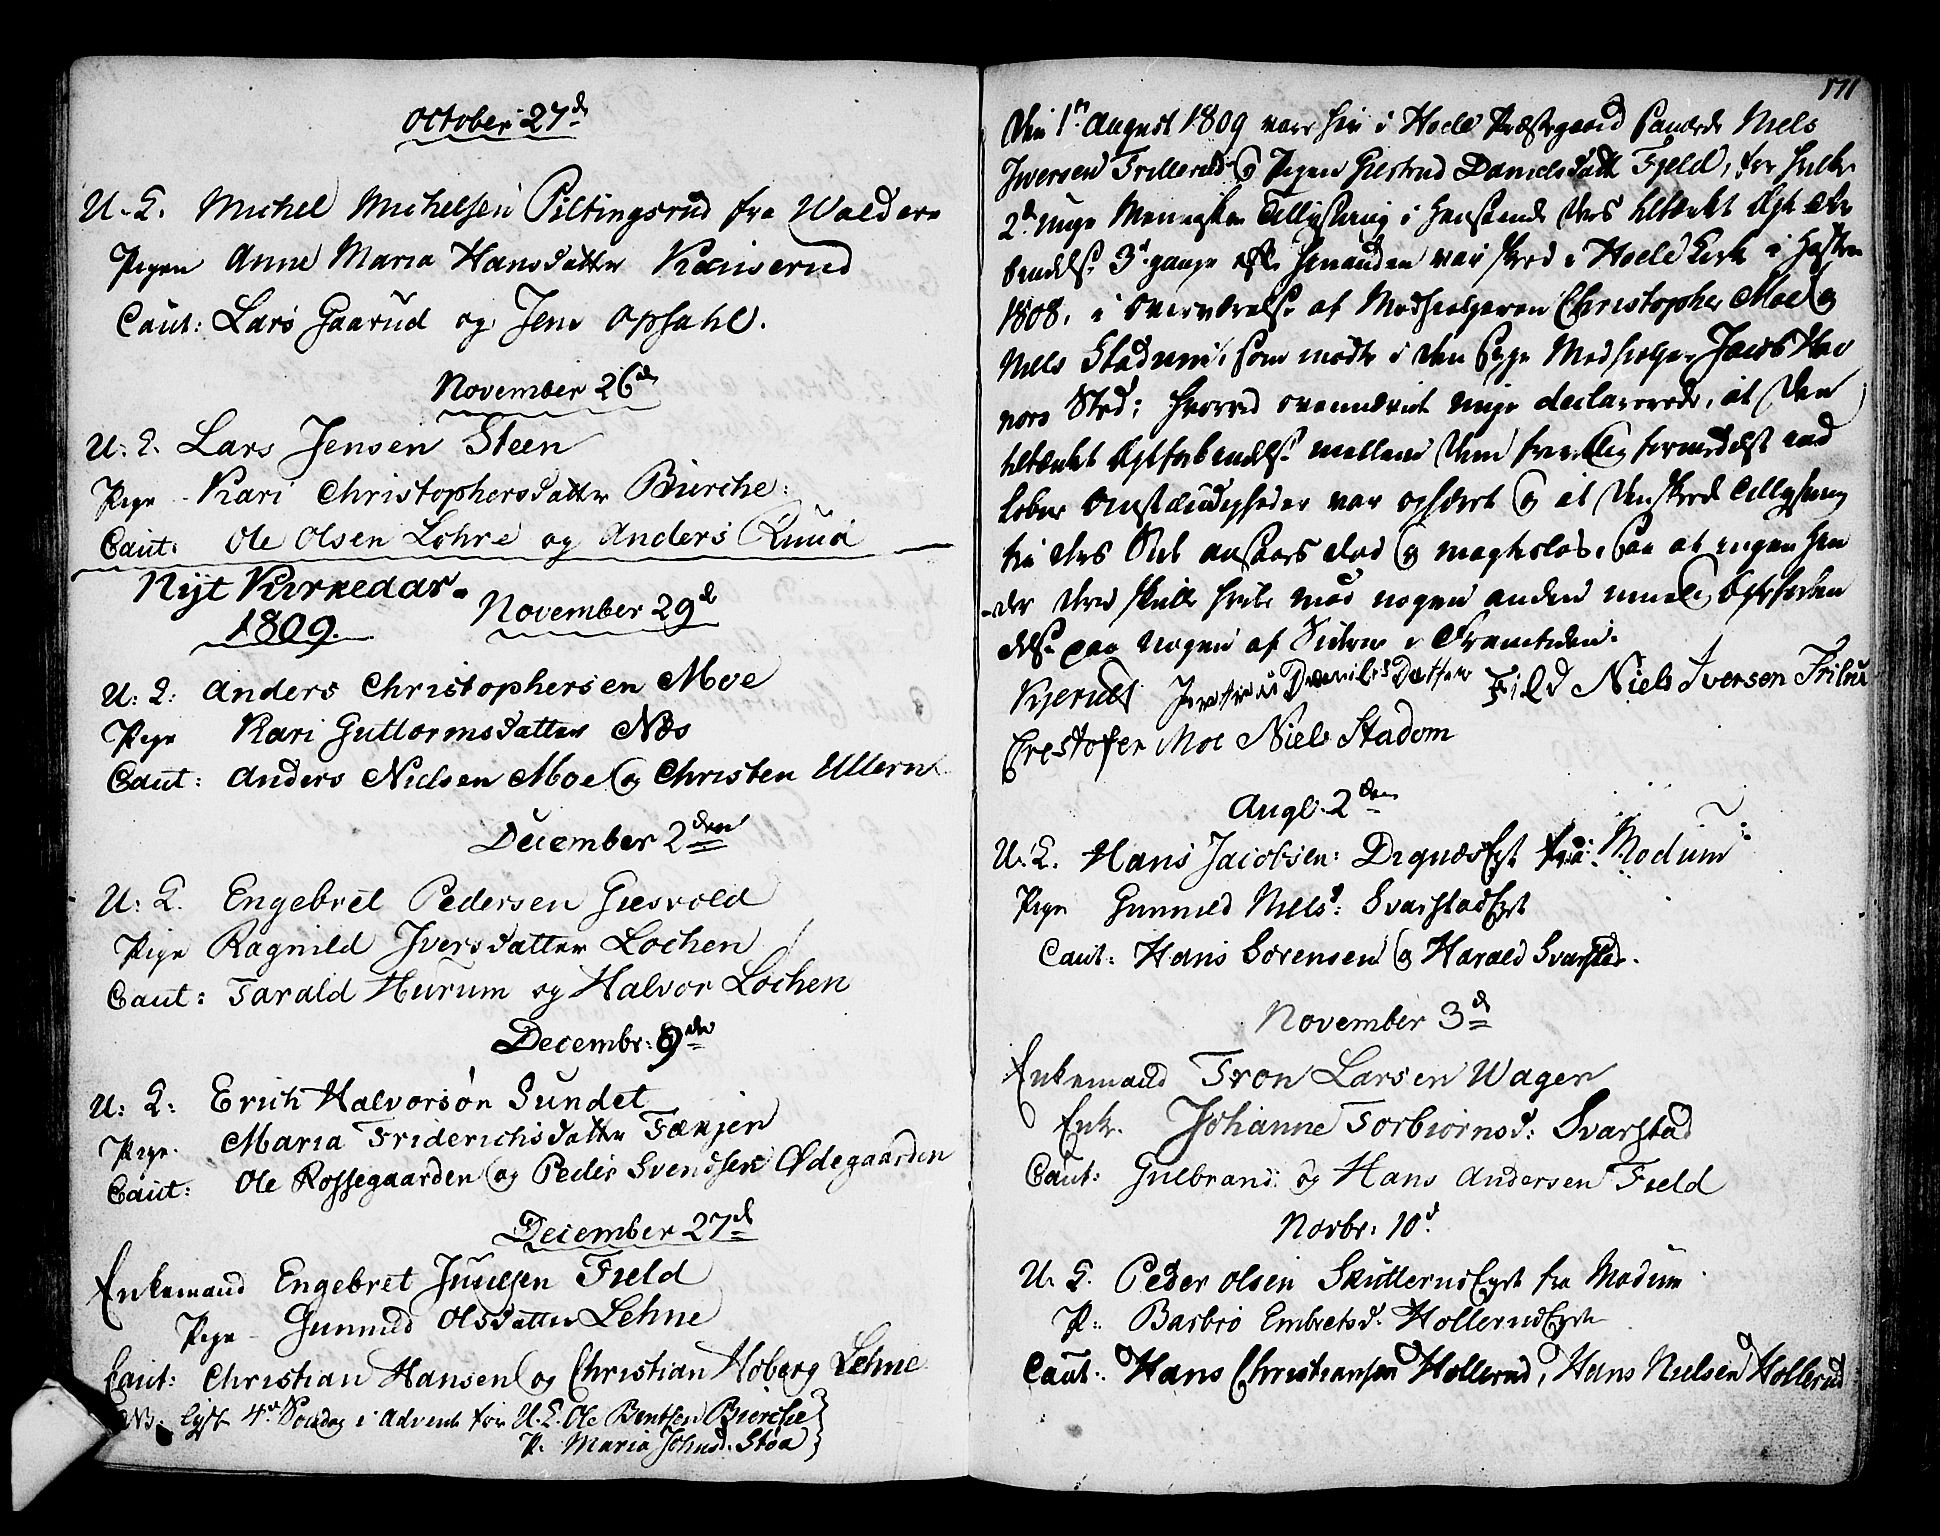 October 27d
U. C. Michel Michelsen Piltingsrud fra Walders
Pigen Anne Maria Hansdatter
Caut: Lars Gaarud og Jens Opsahl.
November 26d
U: C. Lars Jensen Steen
Pige Kari Christophersdatter Bierche:
Caut: Ole Olsen Lehne og Anders
Nyt Kirkeaar
1809.
November 29d
U: C: Anders Christophersen Moe
Pige Kari Guttormsdatter Næs
Caut: Anders Nielsen Moe og Christen Ullern
December 2den
U: C. Engebret Pedersen Giesvold
Pige Ragnild Iversdatter Lochen
Caut: Tarald Hurum og Halvor Lochen
Decembr: 9de
U: C: Erich Halvorsøn Sundet
Pige. Maria Friderichsdatter Fækjen
Caut: Ole Rossegaarden og Peder Svendsen Ødegaarden
December 27d
Enkemand Engebret Juulsen Field
Pige Gunnild Olsdatter Lehne
Caut: Christian Hansen og Christian Hoberg Lehne
NB: Lyst 4de Søndag i Advent for U. C. Ole Bentsen Bierche
P. Maria Johnsd. Stoa
571
Den 1ste August 1809 var her i Hoele Præstegaard Niels
Iversen Trillerud og Pigen Giertrud Danielsdatt Field, for hvilke
2de unge Mennesker Tillysning i Henseende deres tiltænkte Ægte
3de gange efter hinanden var skeed i Hoele Kirke i Høsten
1808, i Overværelse af Medhielperen Christopher Moe og
Niels Stadum, som mødte i den syge Medhielper Jacob
Sted; hvorved ovennævnte unge declarerede, at den
tiltænkte Ægteforbindelse mellem dem formedelst
Omstændigheder var ophævet og at den skeede Tillysning
fra deres Side ansees død og magtesløs, saa at ingen
der ved skulle have mod nogen anden
paa nogen af Siderne i Fremtiden.
Kjerulf Danilsdatter Field Niels Iversen
Crestofer Moe Niels Stadom
Augt. 2den
U. C. Hans Jacobsen: DignæsEyet fra Modum
Pige Gunnild Nielsd: SvarstadEyet
Caut: Hans Sørensen og Harald Svarstad.
November 3d
Enkemand Tron Larsen Wager
Enke. Johanne Torbiørnsd: Svarstad
Caut: Gulbrand og Hans Andersen Field
Novbr: 10d
U. C. Peder Olsen SkutterudEyet fra Modum
P: Barbro Embretsd: HollerudEyet
Caut: Hans Christiansen Hollerud, Hans Nielsen Hollerud